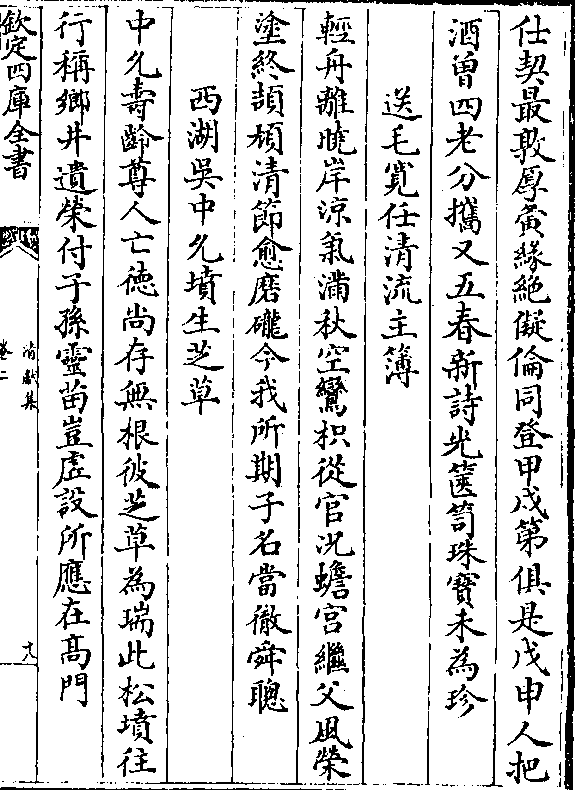 仕契最敦厚寅緣絕儗倫同登甲戌第俱是戊申人把
酒曾四老分攜又五春新詩光篋笥珠寶未為珍
送毛寬任清流主簿
輕舟離曉岸涼氣滿秋空鸞枳從官況蟾宮繼父風榮
塗終頡頏清節愈磨礲今我所期子名當徹舜聰
西湖吳中允墳生芝草
中允壽齡尊人亡德尚存無根彼芝草為瑞此松墳往
行稱鄉井遺榮付子孫靈苗豈虛設所應在高門
欽定四庫全書
清獻集
卷二
十九